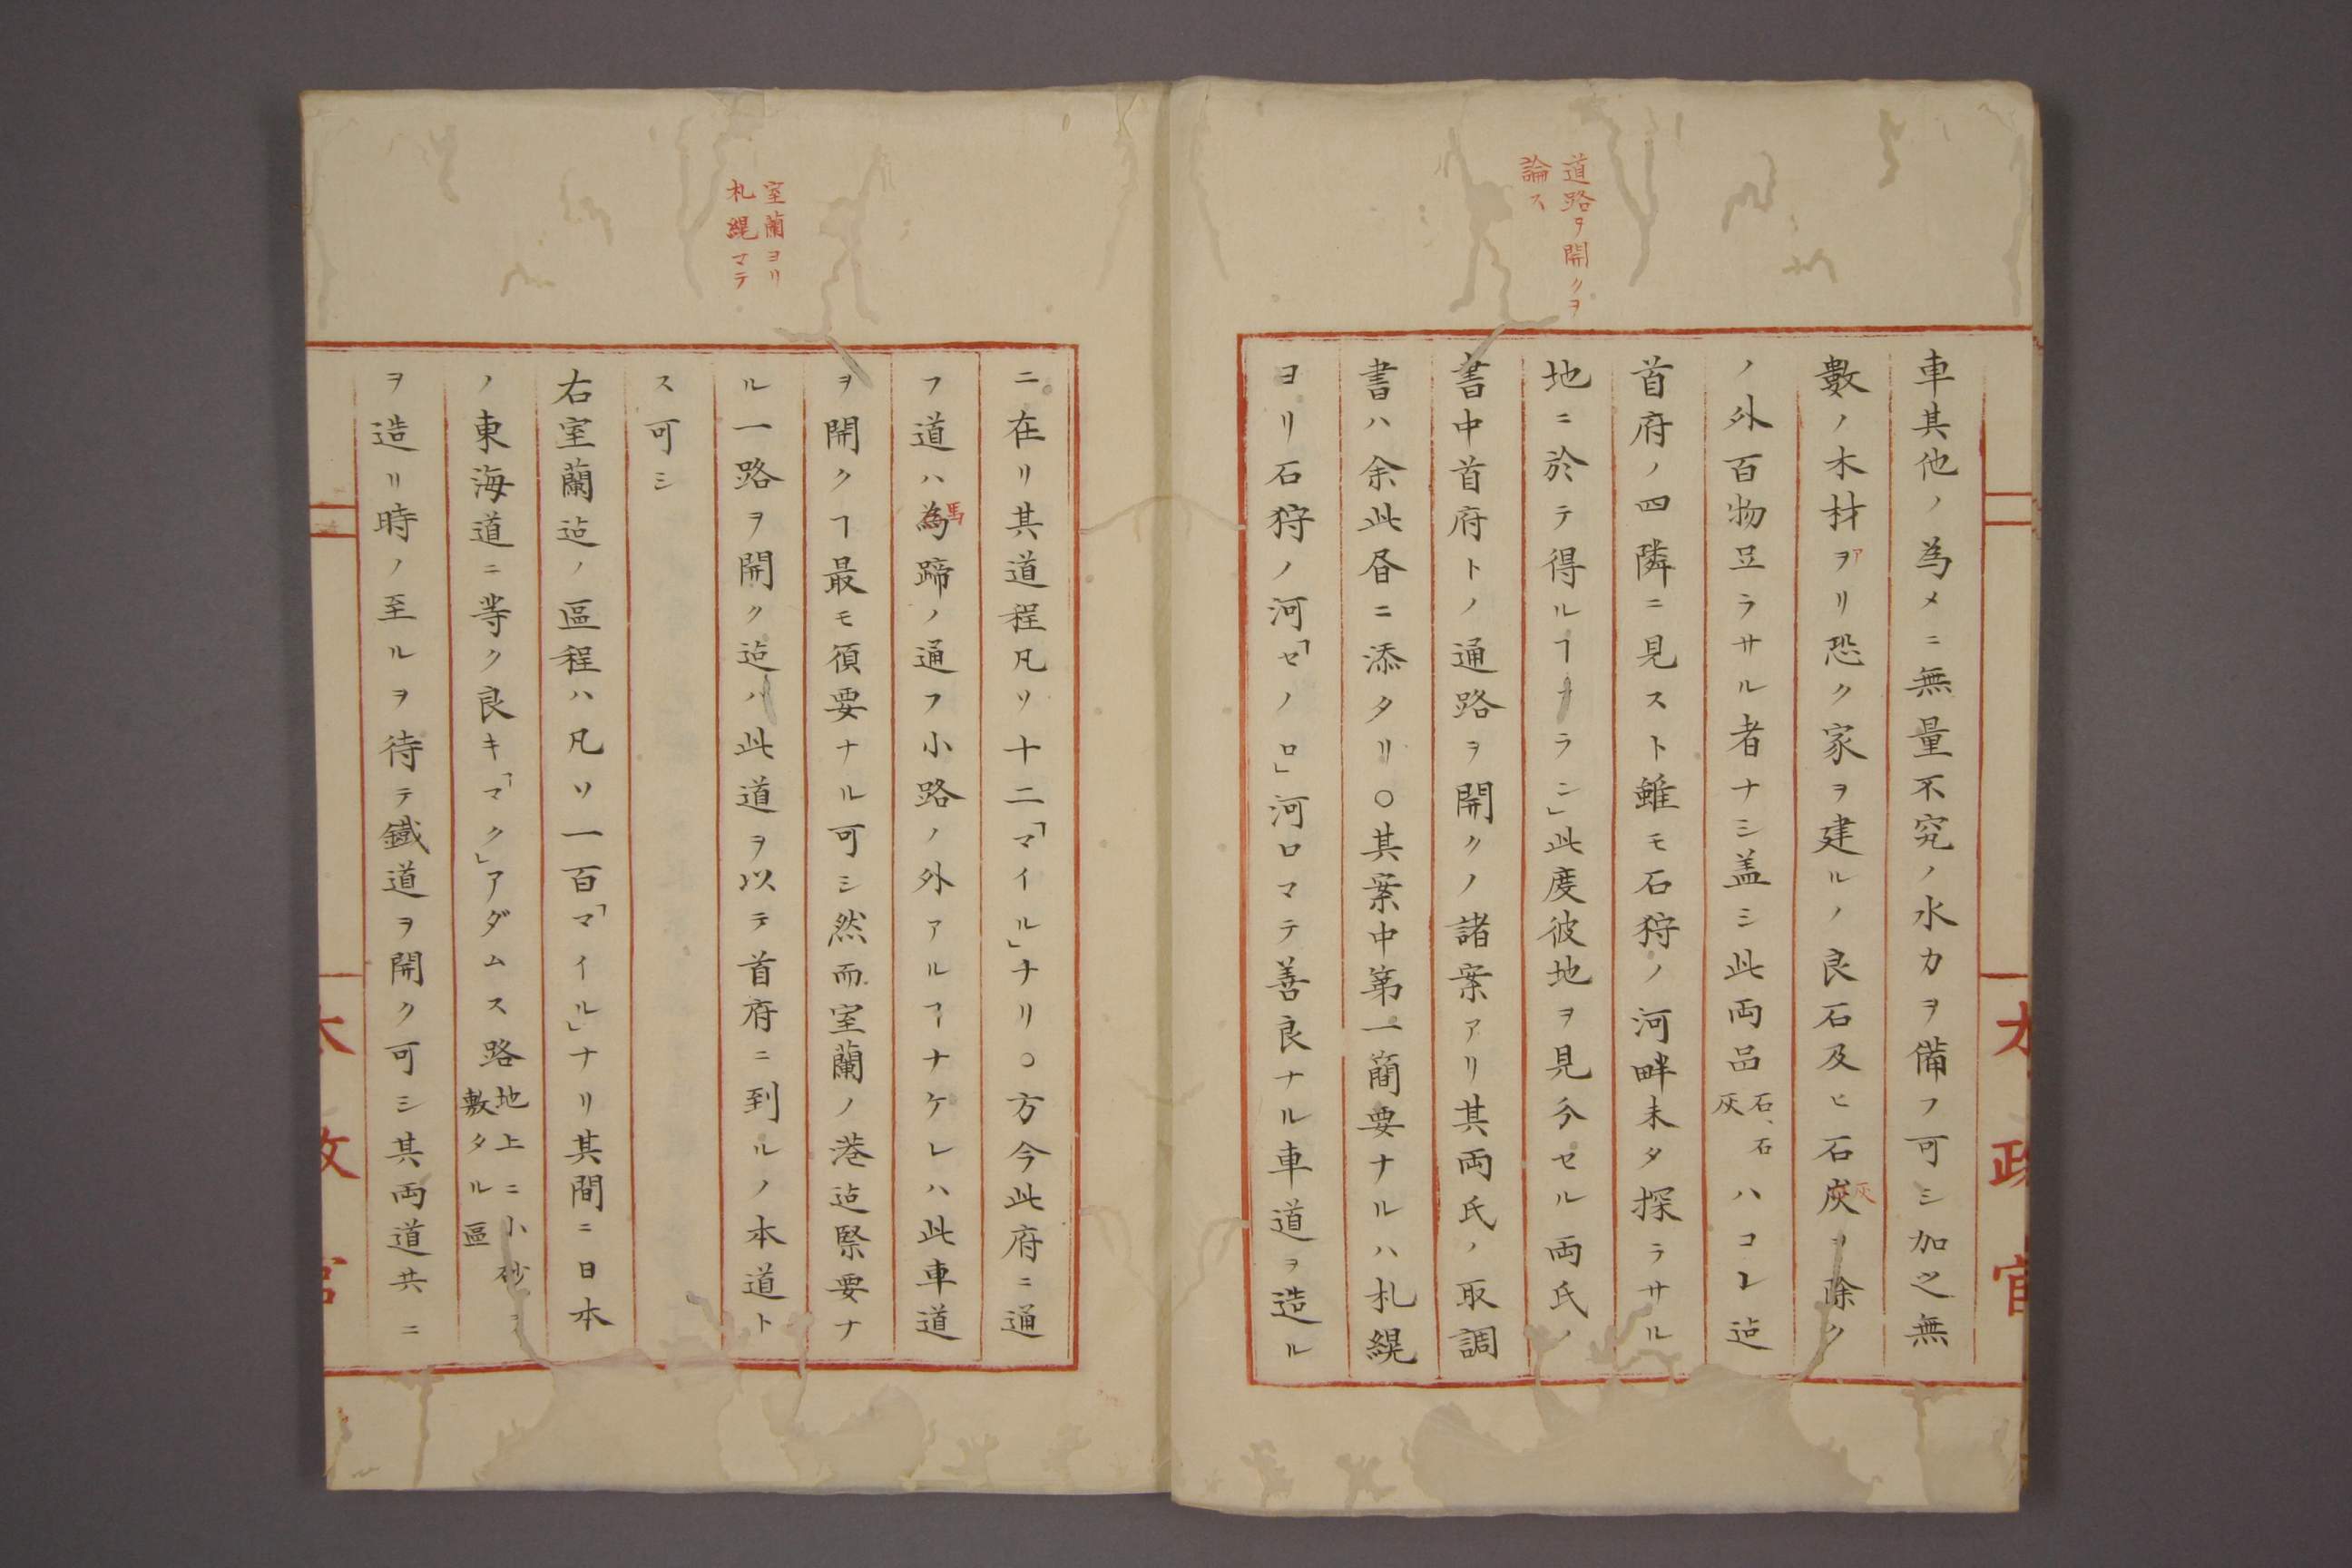 道路ヲ開クヲ
論ス
車其他ノ為メニ無量不究ノ水力ヲ備フ可シ加之無
數ノ木材ヲリ恐ク家ヲ建ルノ良石及ヒ石炭ヲ除ク
ア
灰
ノ外百物足ラサル者ナシ盖シ此両品石、石灰ハコレ迠
首府ノ四隣ニ見スト雖モ石狩ノ河畔未タ探ラサル
地ニ於テ得ルヿナラン」此度彼地ヲ見分セル両氏ノ
書中首府トノ通路ヲ開クノ諸案アリ其両氏ノ取調
書ハ余此昏ニ添タリ○其案中第一簡要ナルハ札縨
ヨリ石狩ノ河「セノロ」河口マテ善良ナル車道ヲ造ル
太政官
室蘭ヨリ
札縨マテ
ニ在リ其道程凡ソ十二「マイル」ナリ○方今此府ニ通
フ道ハ為蹄ノ通フ小路ノ外アルヿナケレハ此車道
馬
ヲ開クヿ最モ須要ナル可シ然而室蘭ノ港迠緊要ナ
ル一路ヲ開ク迠ハ此道ヲ以テ首府ニ到ルノ本道ト
ス可シ
右室蘭迠ノ區程ハ凡ソ一百「マイル」ナリ其間ニ日本
ノ東海道ニ等ク良キ「マク」アダムス路地上ニ小砂ヲ敷タル區
ヲ造リ時ノ至ルヲ待テ鐵道ヲ開ク可シ其両道共ニ